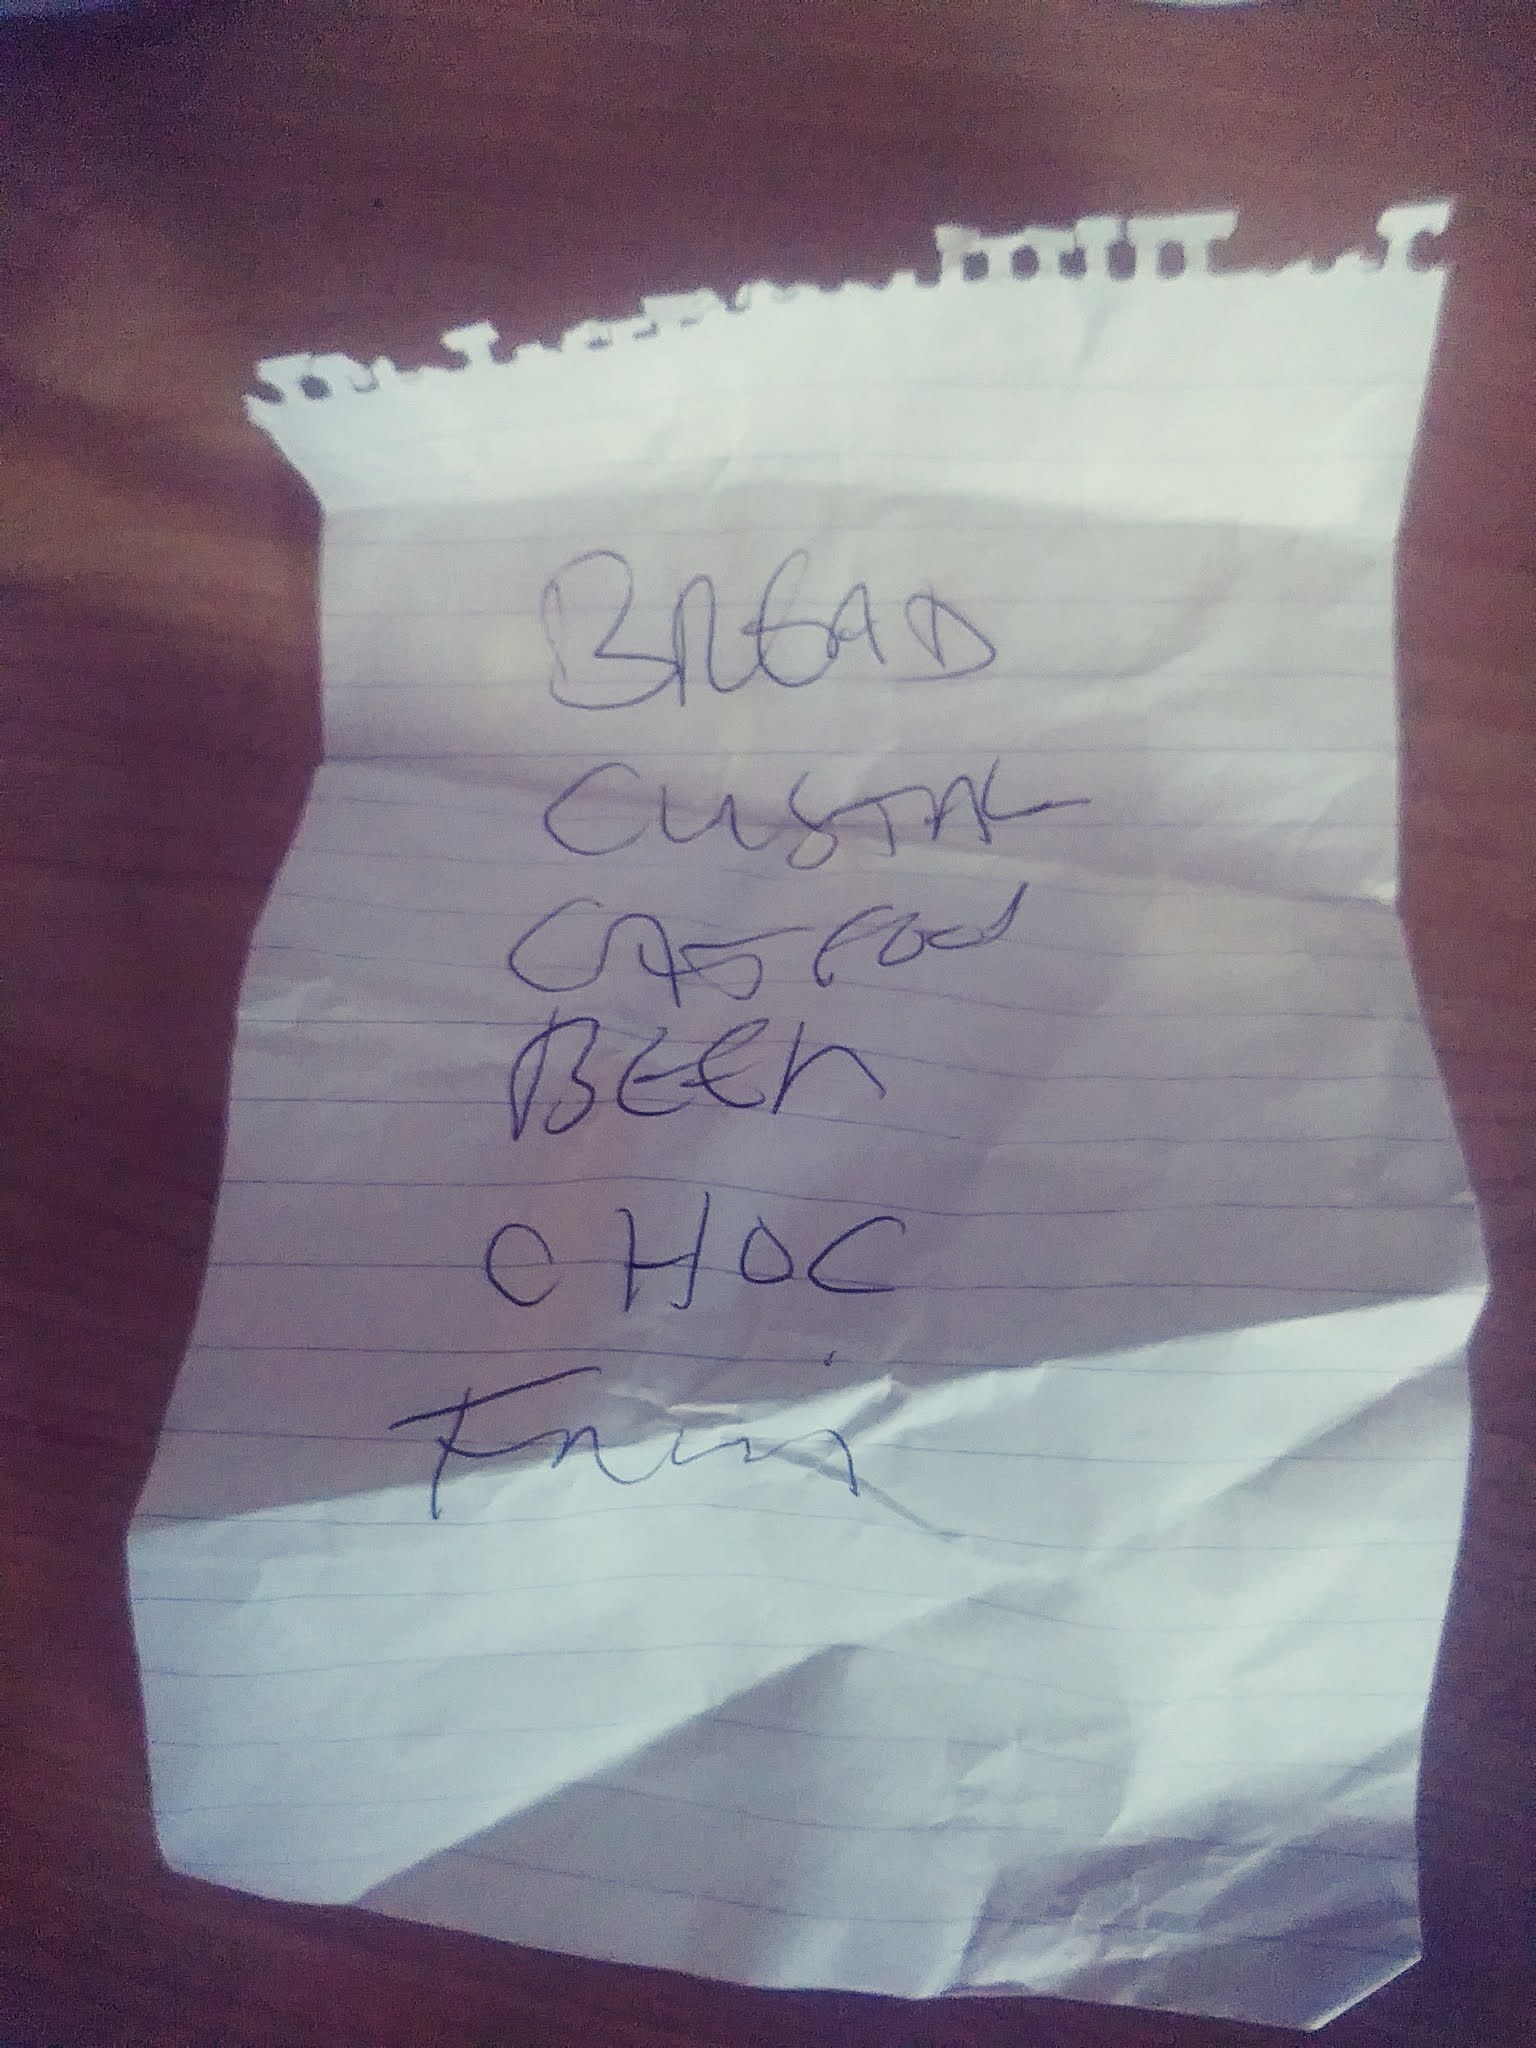 BREAD
CUSTARD
CAT FOOD
BEER
CHOC
FRUIT